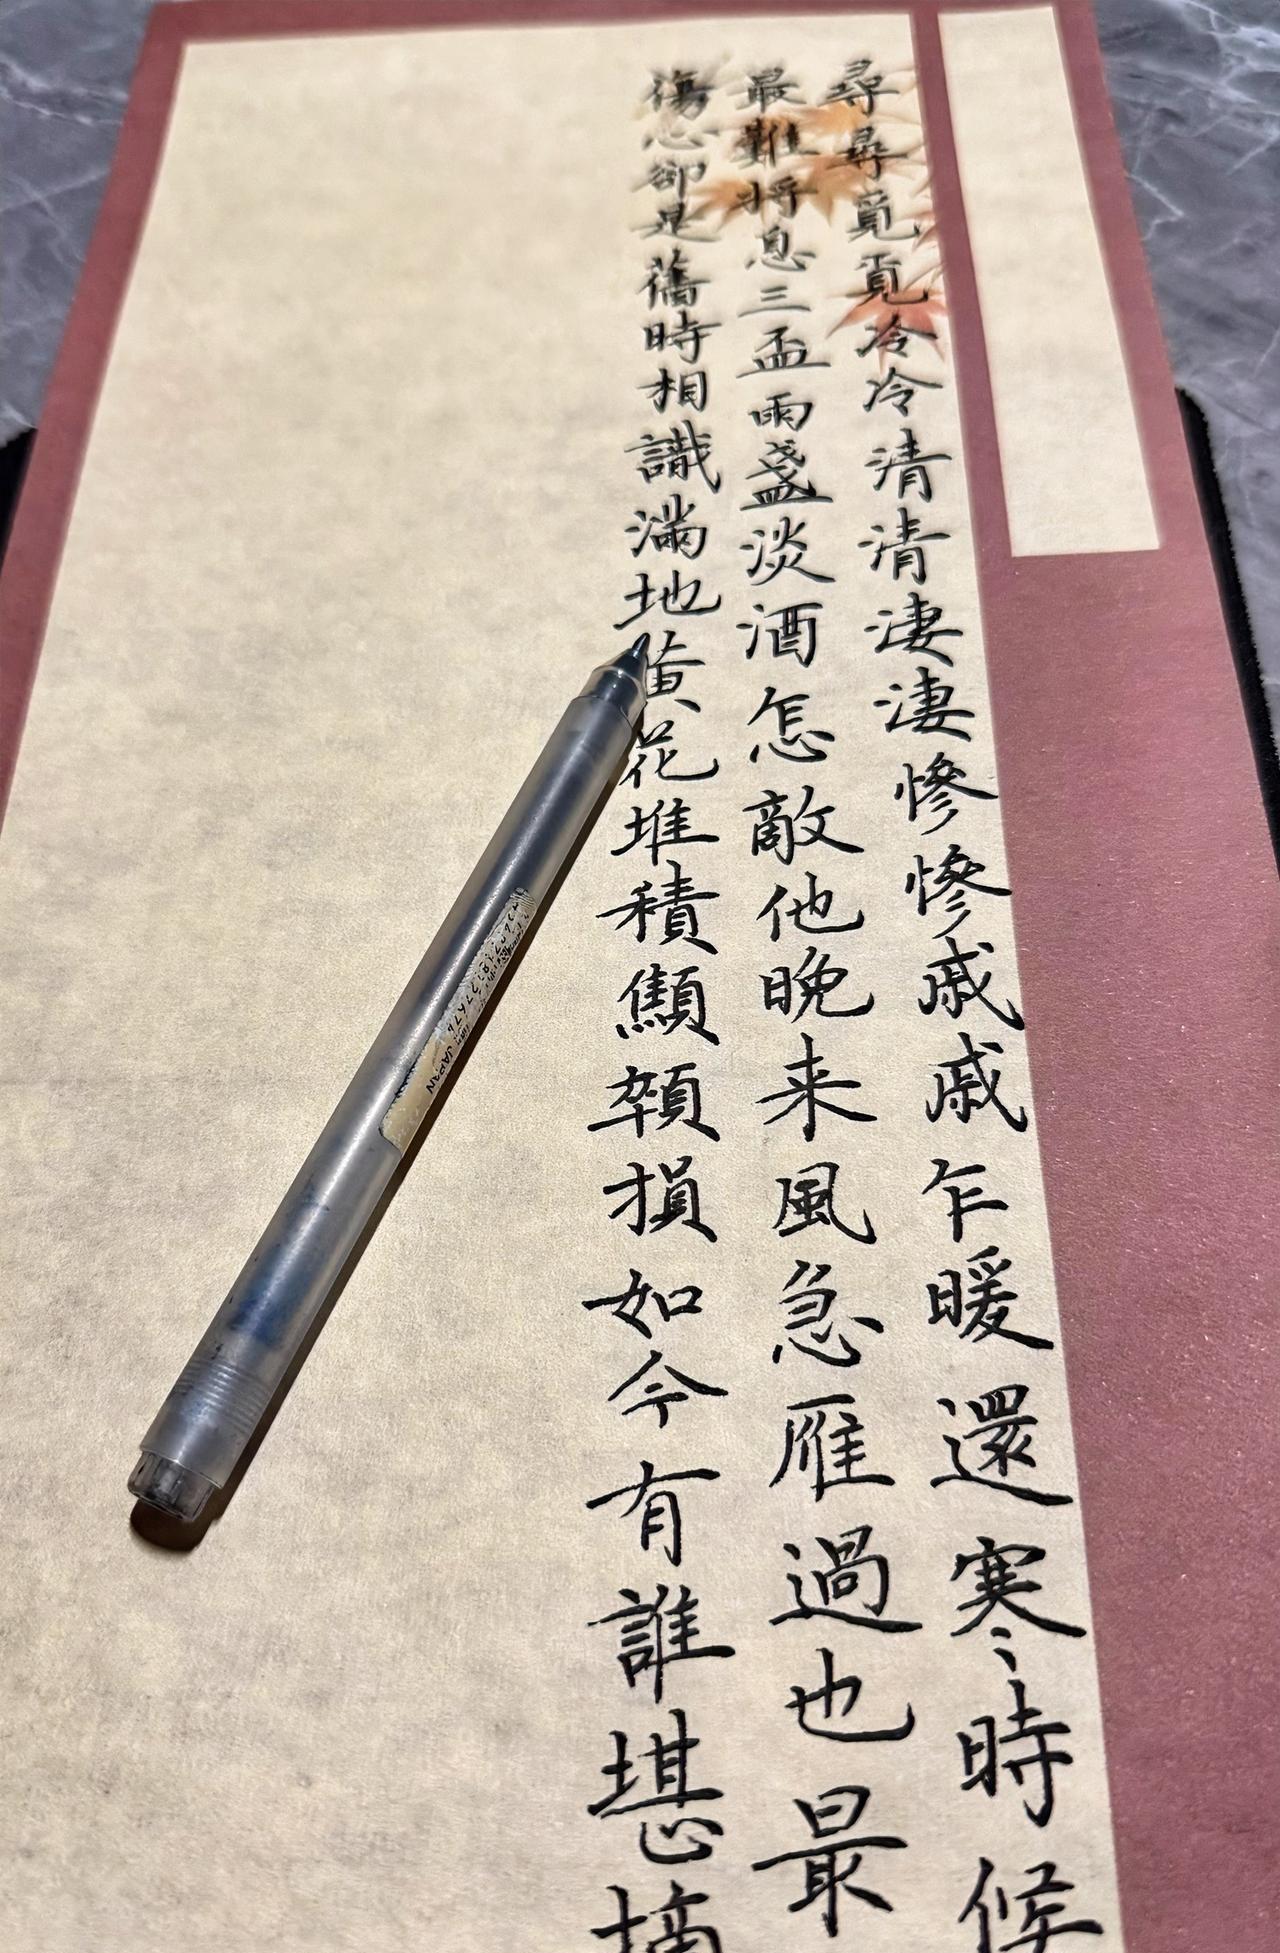 尋尋覓覓冷冷清清淒淒慘慘戚戚乍暖還寒時候
最難將息三盃兩盞淡酒怎敵他晚来風急雁過也最
傷心卻是舊時相識滿地黄花堆積顦顇損如今有誰堪摘
JAPAN